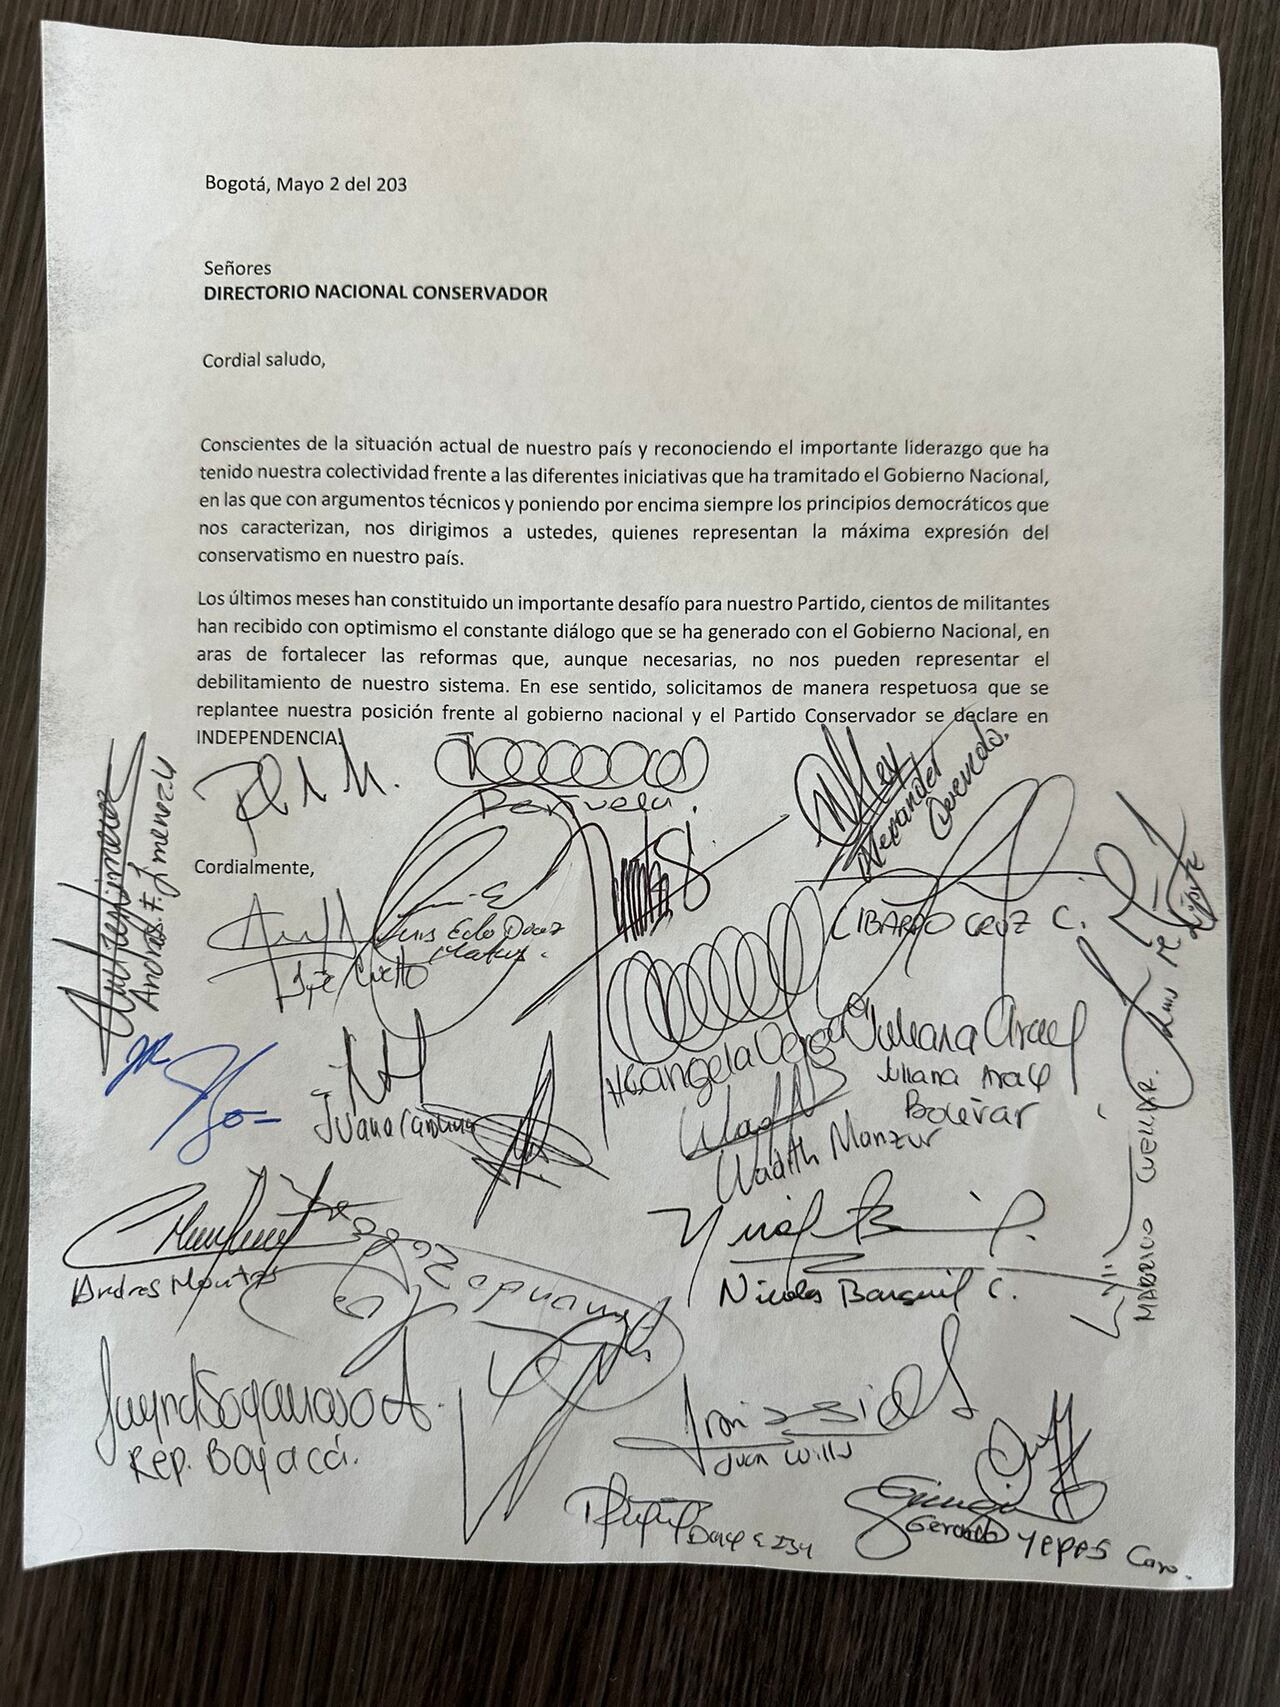 Bogotá, Mayo 2 del 203
Señores
DIRECTORIO NACIONAL CONSERVADOR
Cordial saludo,
Conscientes de la situación actual de nuestro país y reconociendo el importante liderazgo que ha
tenido nuestra colectividad frente a las diferentes iniciativas que ha tramitado el Gobierno Nacional,
en las que con argumentos técnicos y poniendo por encima siempre los principios democráticos que
nos caracterizan, nos dirigimos a ustedes, quienes representan la máxima expresión del
conservatismo en nuestro país.
Los últimos meses han constituido un importante desafío para nuestro Partido, cientos de militantes
han recibido con optimismo el constante diálogo que se ha generado con el Gobierno Nacional, en
aras de fortalecer las reformas que, aunque necesarias, no nos pueden representar el
debilitamiento de nuestro sistema. En ese sentido, solicitamos de manera respetuosa que se
replantee nuestra posición frente al gobierno nacional y el Partido Conservador se declare en
INDEPENDENCIA.
Cordialmente,
Andres F. Jimenez
Alexander Quevedo.
LIBARDO CRUZ C.
Juliana Aray
Bolívar
Juana Carolina
Wadith Manzur
MAURICIO CUELLAR.
Andres Montes
Nicolas Barguil C.
Rep. Boyacá.
Juan Wills
Gerardo Yepes Caro.